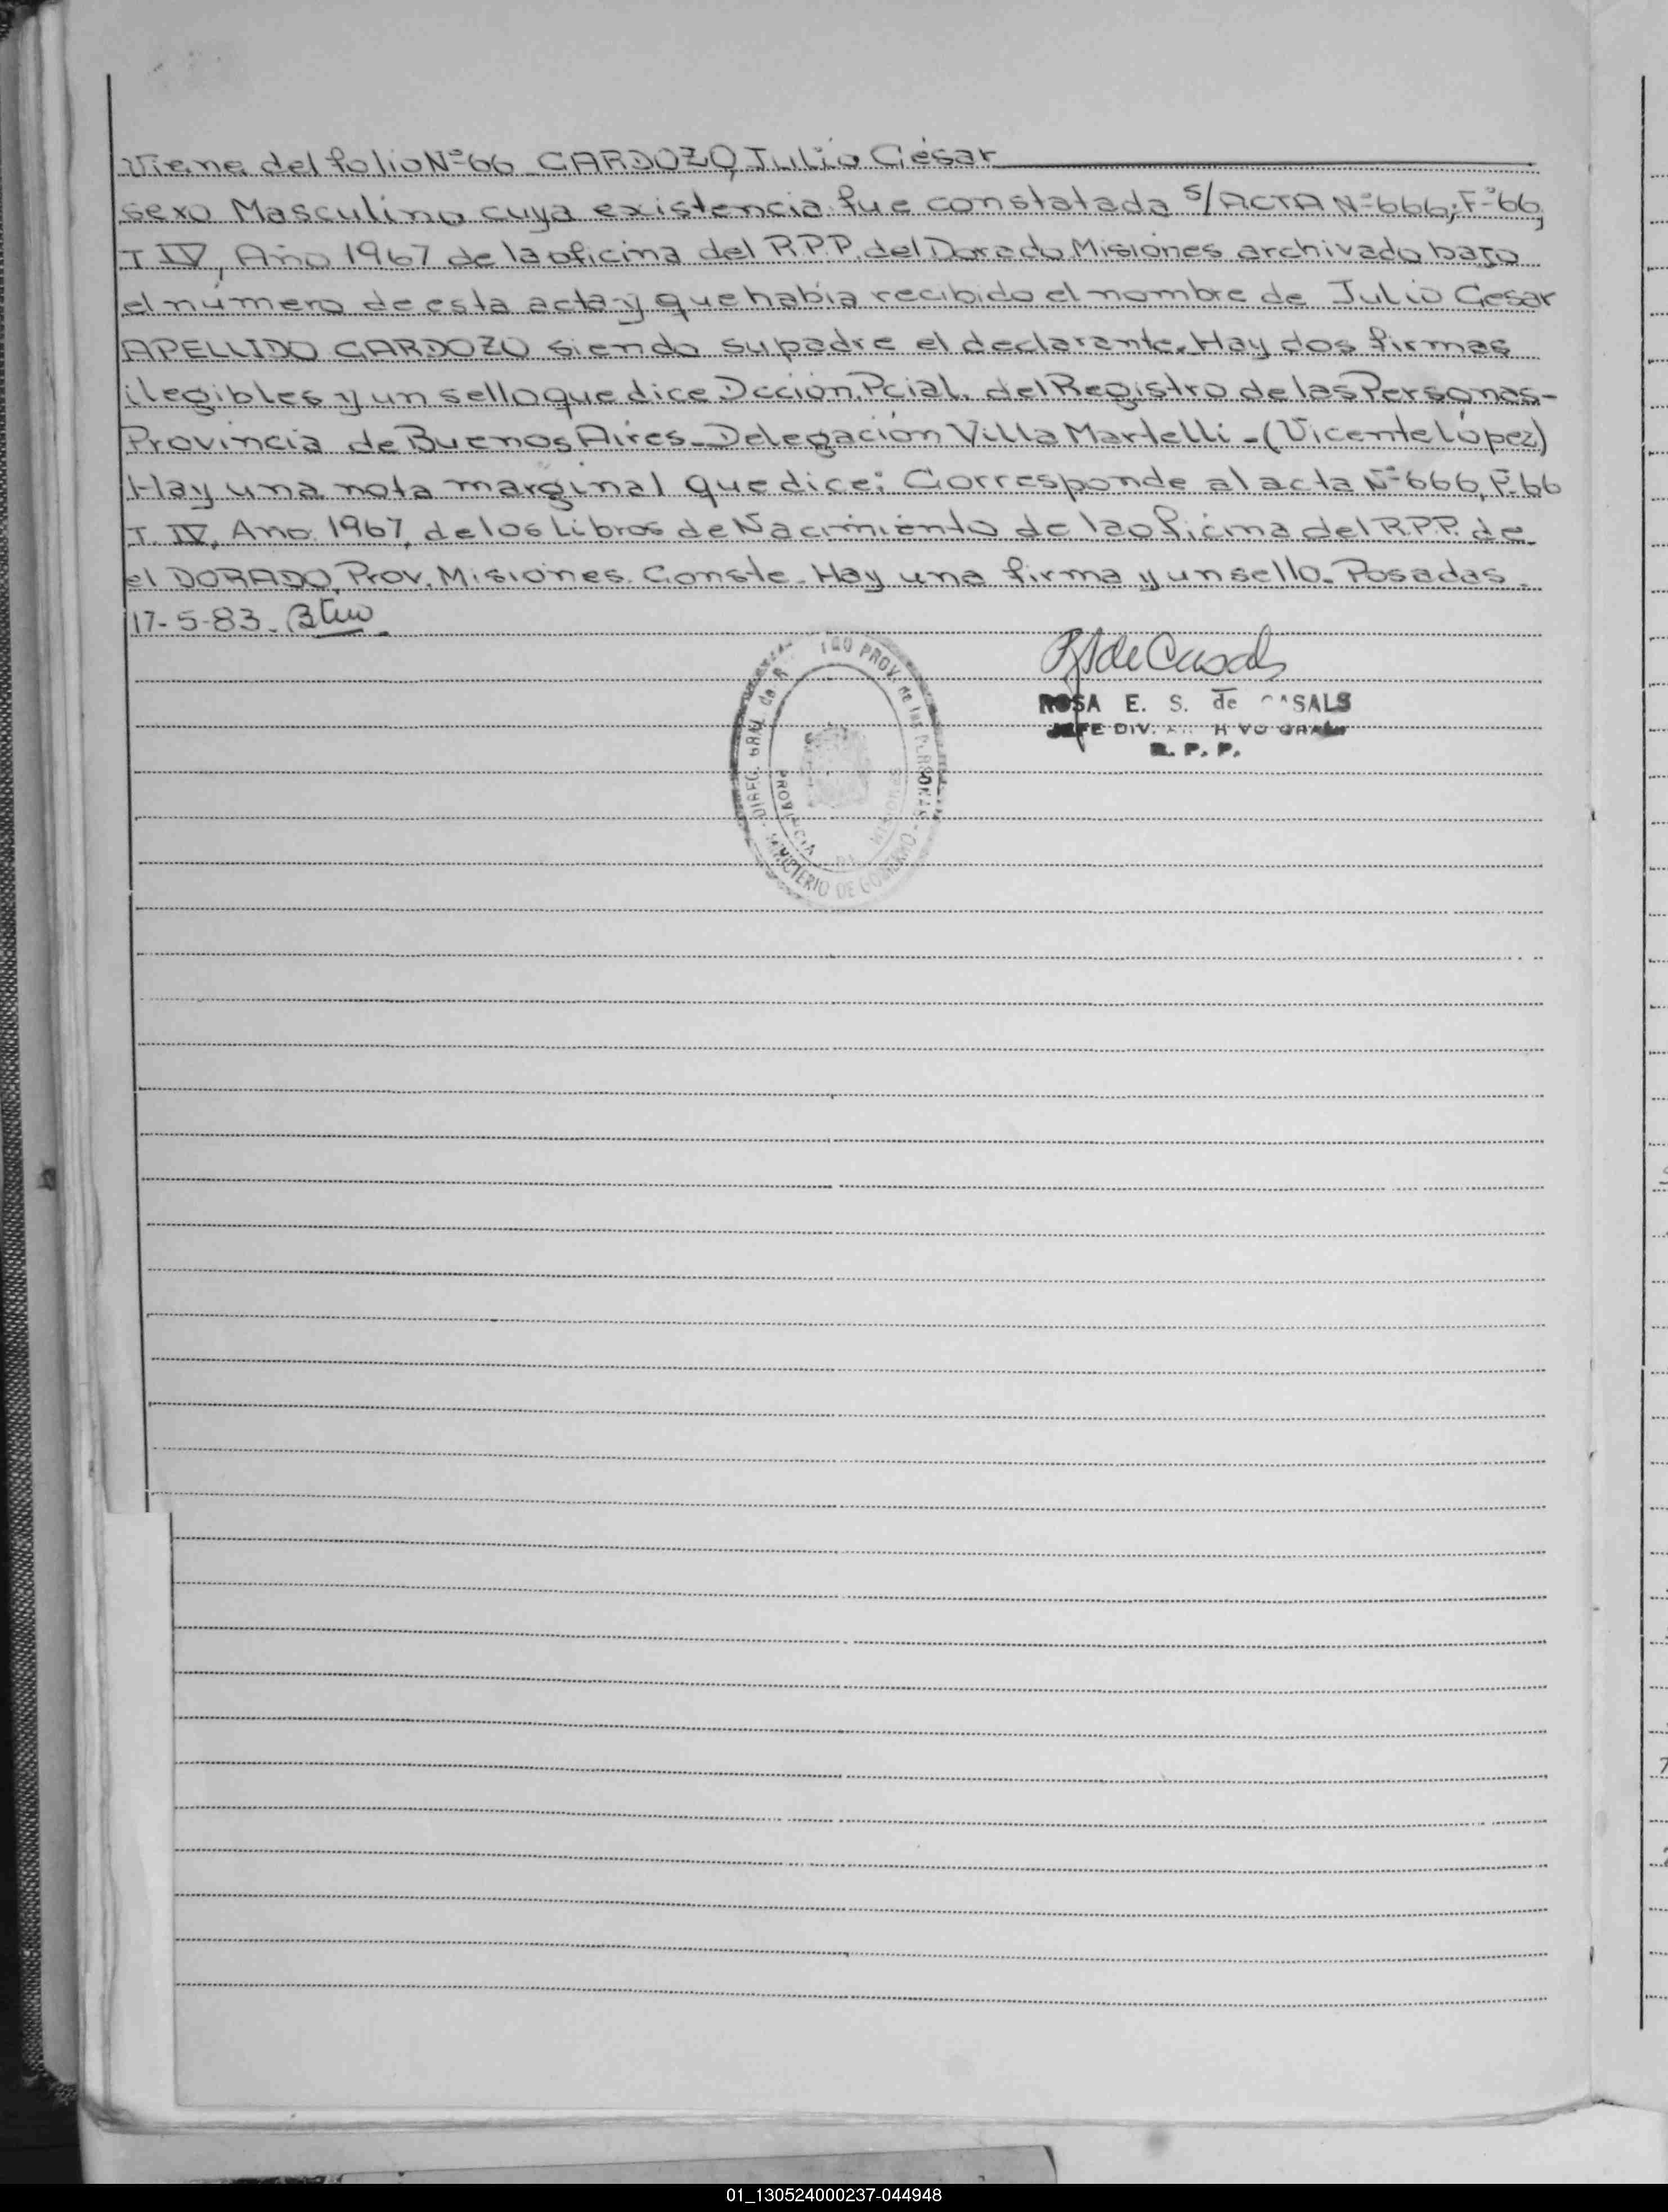 Viene del folio Nº 66 CARDOZO, Julio César
sexo Masculino cuya existencia fue constatada s/ACTA Nº 666; Fº 66,
T IV, Año 1967 de la oficina del R.P.P. del Dorado Misiones archivado bajo
el número de esta acta y que había recibido el nombre de Julio Cesar
APELLIDO CARDOZO siendo su padre el declarante. Hay dos firmas
ilegibles y un sello que dice Dcción. Pcial. del Registro de las Personas-
Provincia de Buenos Aires - Delegación Villa Martelli - (Vicente López)
Hay una nota marginal que dice: Corresponde al acta Nº 666, F. 66
T. IV, Año 1967, de los Libros de Nacimiento de la oficina del R.P.P. de
el DORADO, Prov. Misiones. Conste. Hay una firma y un sello. Posadas.
17-5-83.
R S de Casals
ROSA E. S. de CASALS
JEFE DIV. ARCHIVO GRAL
R. P. P.
DIREC. GRAL. de PROV. de las PERSONAS
MINISTERIO DE GOBIERNO
PROVINCIA DE MISIONES
01_130524000237-044948